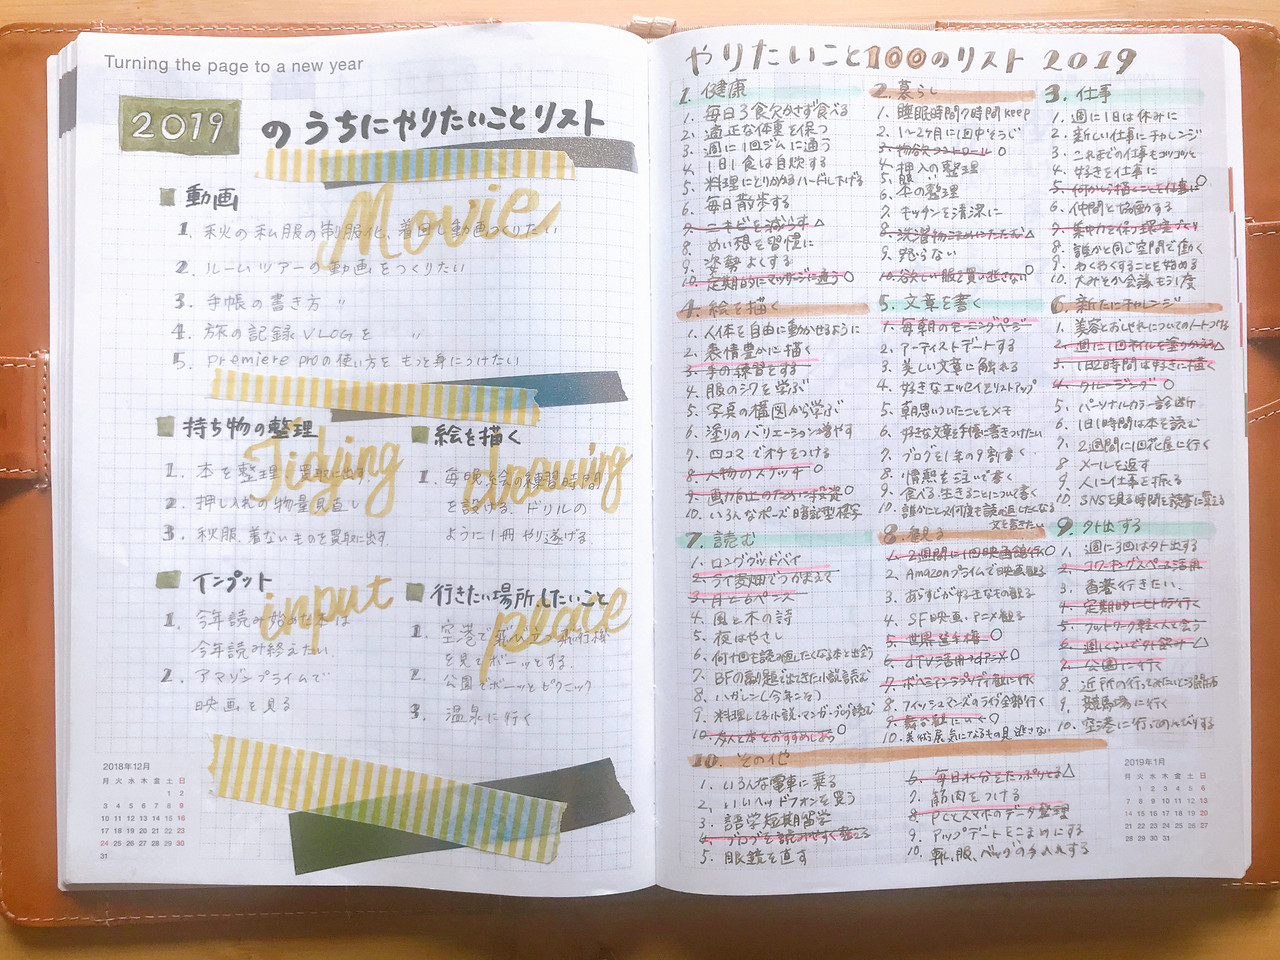 Turning the page to a new year
2019 のうちにやりたいことリスト
動画
Movie
1. 秋火の私服の制服化、着回し動画つくりたい
2. ルームツアーの動画をつくりたい
3. 手帳の書き方 〃
4. 旅の記録 VLOGを 〃
5. premiere proの使い方をもっと身につけたい
持ち物の整理
Tidying
1. 本を整理、買取に出す。
2. 押し入れの物量見直し
3. 秋服、着ないものを買取に出す。
絵を描く
drawing
1. 毎晩、絵の練習時間
を設ける。ドリルの
ように1冊やり遂げる。
インプット
input
1. 今年読み始めた本は
今年読み終えたい。
2. アマゾンプライムで
映画を見る
行きたい場所、したいこと
place
1. 空港で飛び立つ飛行機
を見てボーッとする。
2. 公園でボーッとピクニック
3. 温泉に行く
2018年12月
月 火 水 木 金 土 日
1 2
3 4 5 6 7 8 9
10 11 12 13 14 15 16
17 18 19 20 21 22 23
24 25 26 27 28 29 30
31
やりたいこと100のリスト 2019
1. 健康
1. 毎日3食欠かさず食べる
2. 適正な体重を保つ
3. 週に1回ジムに通う
4. 1日1食は自炊する
5. 料理にとりかかるハードル下げる
6. 毎日散歩する
7. ニキビを減らす △
8. めい想を習慣に
9. 姿勢よくする
10. 定期的にマッサージに通う ○
2. 暮らし
1. 睡眠時間7時間keep
2. 1〜2ヶ月に1回中そうじ
3. 物欲コントロール ○
4. 押入の整理
5. 服 〃
6. 本の整理
7. キッチンを清潔に
8. 洗濯物こまめにたたむ △
9. 怒らない
10. 欲しい服を買い逃さない ○
3. 仕事
1. 週に1日は休みに
2. 新しい仕事にチャレンジ
3. これまでの仕事もコツコツと
4. 好きを仕事に
5. 何かしら描くことを仕事に ○
6. 仲間と協働する
7. 集中力を保つ環境づくり
8. 誰かと同じ空間で働く
9. わくわくすることを始める
10. 大みそか会議もう1度
4. 絵を描く
1. 人体を自由に動かせるように
2. 表情豊かに描く
3. 手の練習をする
4. 服のシワを学ぶ
5. 写真の構図から学ぶ
6. 塗りのバリエーション増やす
7. 四コマでオチをつける
8. 人物のスケッチ ○
9. 画力向上のために投資 ○
10. いろんなポーズ暗記型模写
5. 文章を書く
1. 毎朝のモーニングページ
2. アーティストデートする
3. 美しい文章に触れる
4. 好きなエッセイをリストアップ
5. 朝思いついたことをメモ
6. 好きな文章を手帳に書きつけたい
7. ブログを1年の9割書く
8. 情熱を注いで書く
9. 食べる、生きることについて書く
10. 誰かにとって何度も読み返したくなる
文を書きたい
6. 新たにチャレンジ
1. 美容とおしゃれについてのノートつける
2. 週に1回ネイルを塗りかえる △
3. 1日2時間は好きに描く
4. クルージング ○
5. パーソナルカラー診断
6. 1日1時間は本を読む
7. 2週間に1回花屋に行く
8. メールを返す
9. 人に仕事を振る
10. SNSを見る時間を読書に変える
7. 読む
1. ロンググッドバイ
2. ライ麦畑でつかまえて
3. 月と6ペンス
4. 風と木の詩
5. 夜はやさし
6. 何十回も読み返したくなる本と出会う
7. BFの動画で出てきた小説読む
8. ハガレン(今年こそ)
9. 料理してる小説・マンガ・ブログ読む
10. 友人と本をおすすめしあう ○
8. 観る
1. 2週間に1回映画館行く ○
2. Amazonプライムで映画観る
3. あらすじが好きなもの観る
4. SF映画・アニメ観る
5. 世界選手権 ○
6. dTV活用、dアニメ ○
7. ボヘミアンラプソディ観に行く
8. フィッシュマンズのライブ全部行く
9. 舞台観にいく ○
10. 美術展、気になるもの見逃さない
9. 外出する
1. 週に3回は外出する
2. コワーキングスペース活用
3. 香港行きたい
4. 定期的に七トが行く
5. フットワーク軽く人と会う
6. 週くらいで外飲み △
7. 公園に行く
8. 近所の行ってみたいところ開拓
9. 競馬場に行く
10. 空港に行ってのんびりする
10. その他
1. いろんな電車に乗る
2. いいヘッドフォンを買う
3. 語学短期留学
4. ブログを読みやすく整える
5. 眼鏡を直す
6. 毎日水分をたっぷりとる △
7. 筋肉をつける
8. PCとスマホのデータ整理
9. アップデートをこまめにする
10. 靴、服、バッグの手入れする
2019年1月
月 火 水 木 金 土 日
1 2 3 4 5 6
7 8 9 10 11 12 13
14 15 16 17 18 19 20
21 22 23 24 25 26 27
28 29 30 31